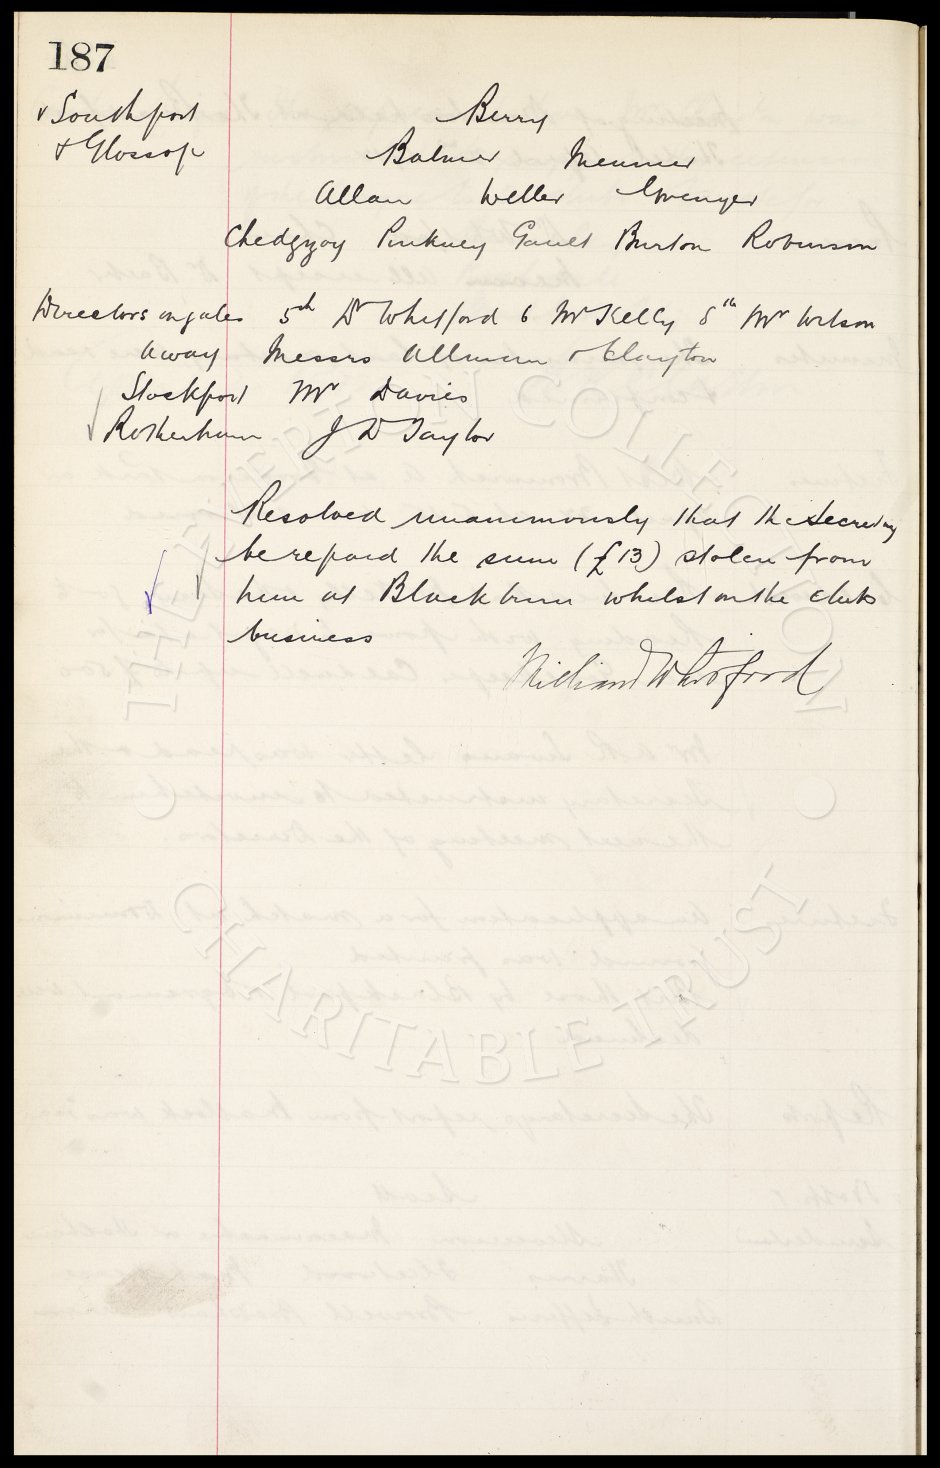 187
v Southport Berry
+ Glossop Balmer Meunier
Allan Weller Grvenyer
Chedgzoy Pinkney Gault Burton Robinson
Directors on gates 5th Dr Whitford 6 Mr Kelly 8th Mr Wilson
Away Messrs Allman & Clayton
Stockport Mr Davies
Rotherham J D Taylor
Resolved unanimously that the Secretary
be repaid the sum (£13) stolen from
him at Blackburn whilst on the clubs
business
William Whitford
THE EVERTON COLLECTION
CHARITABLE TRUST